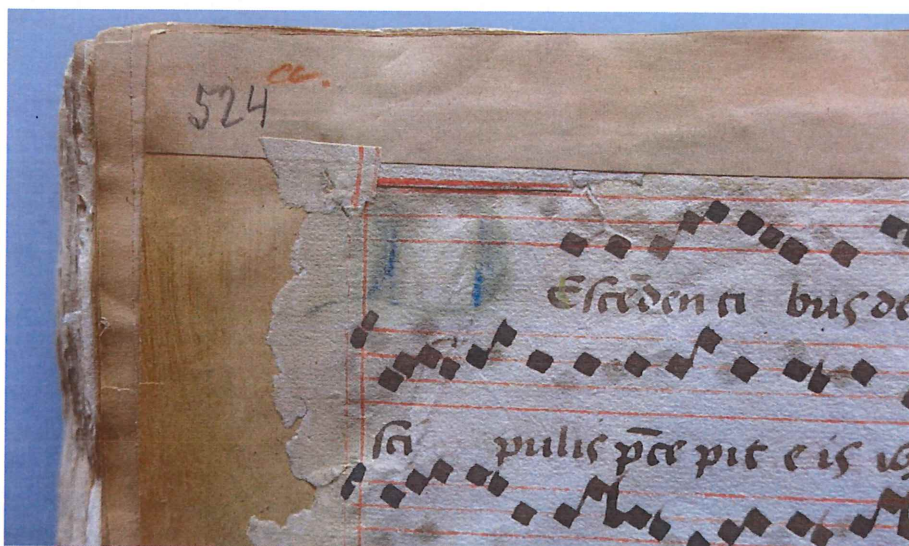 524
Escēdenti bus de
sci pulis p̄ce pit eis